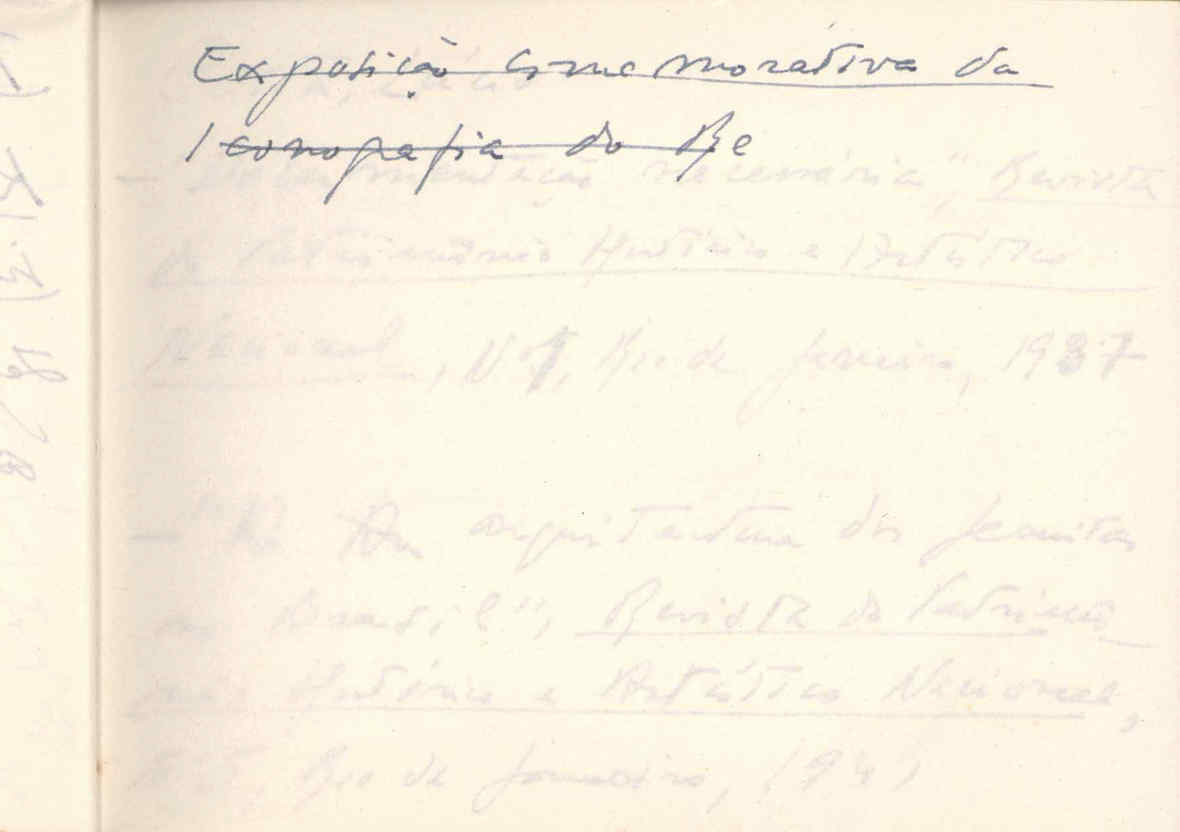 Exposição comemorativa da
Iconografia do Re
— "Documentação necessária", Revista
do Patrimônio Histórico e Artístico
Nacional, Nº 1, Rio de Janeiro, 1937
— "A arquitetura dos Jesuitas
no Brasil", Revista do Patrimô-
nio Histórico e Artístico Nacional,
Rio de Janeiro, 1941